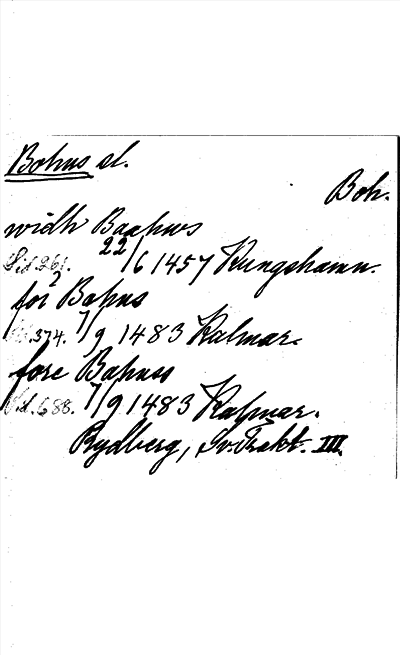 Bohus sl.
Boh.
widh Baahws
Sid 261. 22/6 1457 Kungshamn.
2
for Bahus
Sid. 374. 7/9 1483 Kalmar.
fore Bahuss
Sid. 688. 7/9 1483 Kalmar.
Rydberg, Sv. Trakt. III.